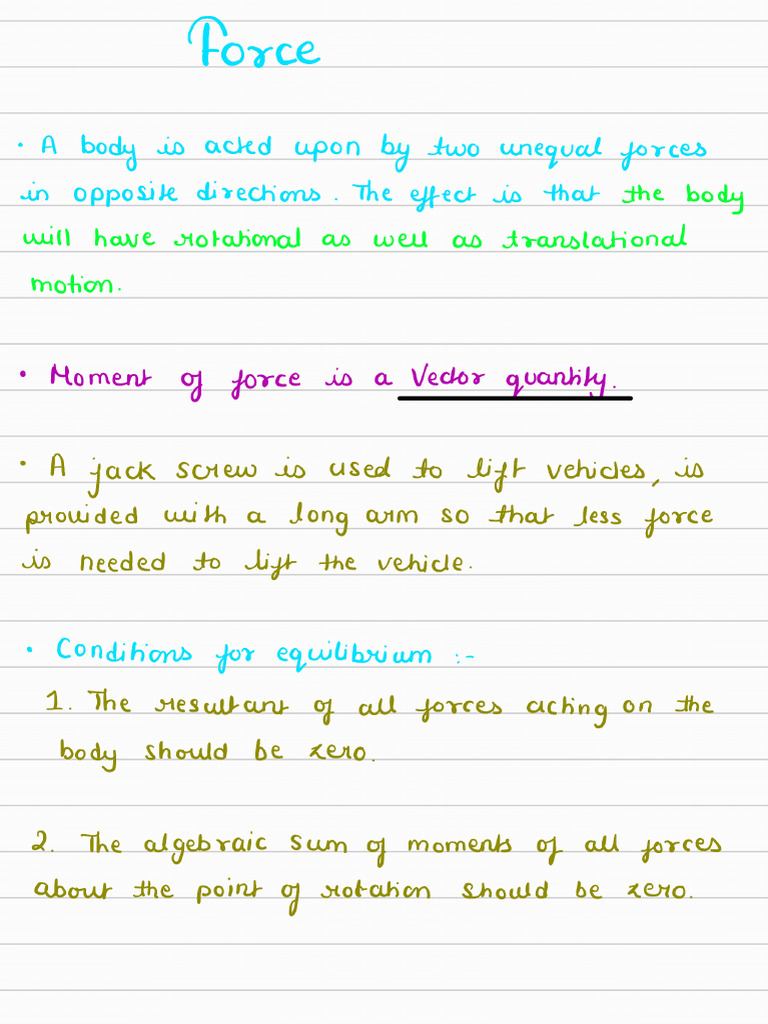 Force
• A body is acted upon by two unequal forces
in opposite directions. The effect is that the body
will have rotational as well as translational
motion.
• Moment of force is a Vector quantity.
• A jack screw is used to lift vehicles, is
provided with a long arm so that less force
is needed to lift the vehicle.
• Conditions for equilibrium :-
1. The resultant of all forces acting on the
body should be zero.
2. The algebraic sum of moments of all forces
about the point of rotation should be zero.